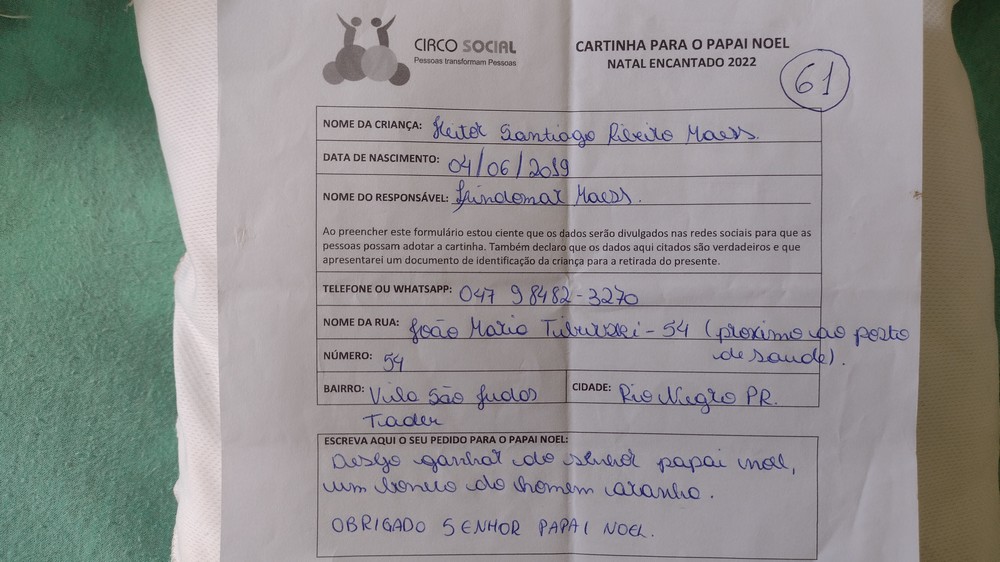 CIRCO SOCIAL
Pessoas transformam Pessoas
CARTINHA PARA O PAPAI NOEL
NATAL ENCANTADO 2022
61
NOME DA CRIANÇA: Heitor Santiago Ribeiro Maess.
DATA DE NASCIMENTO: 04/06/2019
NOME DO RESPONSÁVEL: Maess.
Ao preencher este formulário estou ciente que os dados serão divulgados nas redes sociais para que as
pessoas possam adotar a cartinha. Também declaro que os dados aqui citados são verdadeiros e que
apresentarei um documento de identificação da criança para a retirada do presente.
TELEFONE OU WHATSAPP: 047 98482-3270
NOME DA RUA: João Maria - 54 (proximo ao posto
de saude).
NÚMERO: 54
BAIRRO: Vila São Judas
Tadeu
CIDADE: Rio Negro PR.
ESCREVA AQUI O SEU PEDIDO PARA O PAPAI NOEL:
Desejo ganhar do senhor papai noel,
um boneco do homem aranha.
OBRIGADO SENHOR PAPAI NOEL.